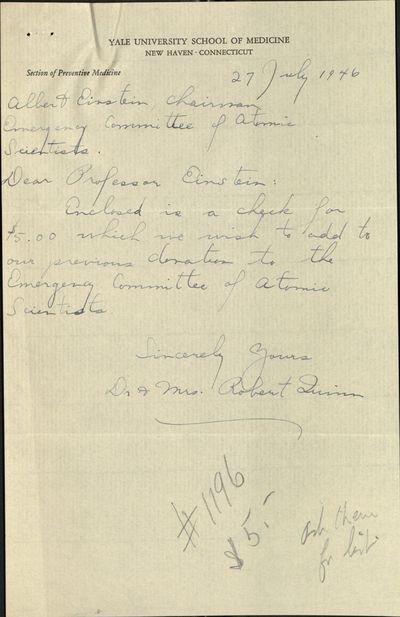 YALE UNIVERSITY SCHOOL OF MEDICINE
NEW HAVEN · CONNECTICUT
Section of Preventive Medicine
27 July 1946
Albert Einstein, Chairman
Emergency Committee of Atomic
Scientists.
Dear Professor Einstein:
Enclosed is a check for
$5.00 which we wish to add to
our previous donation to the
Emergency Committee of Atomic
Scientists
Sincerely Yours
Dr & Mrs. Robert Quinn
#1196
$5.-
ask them
for list.